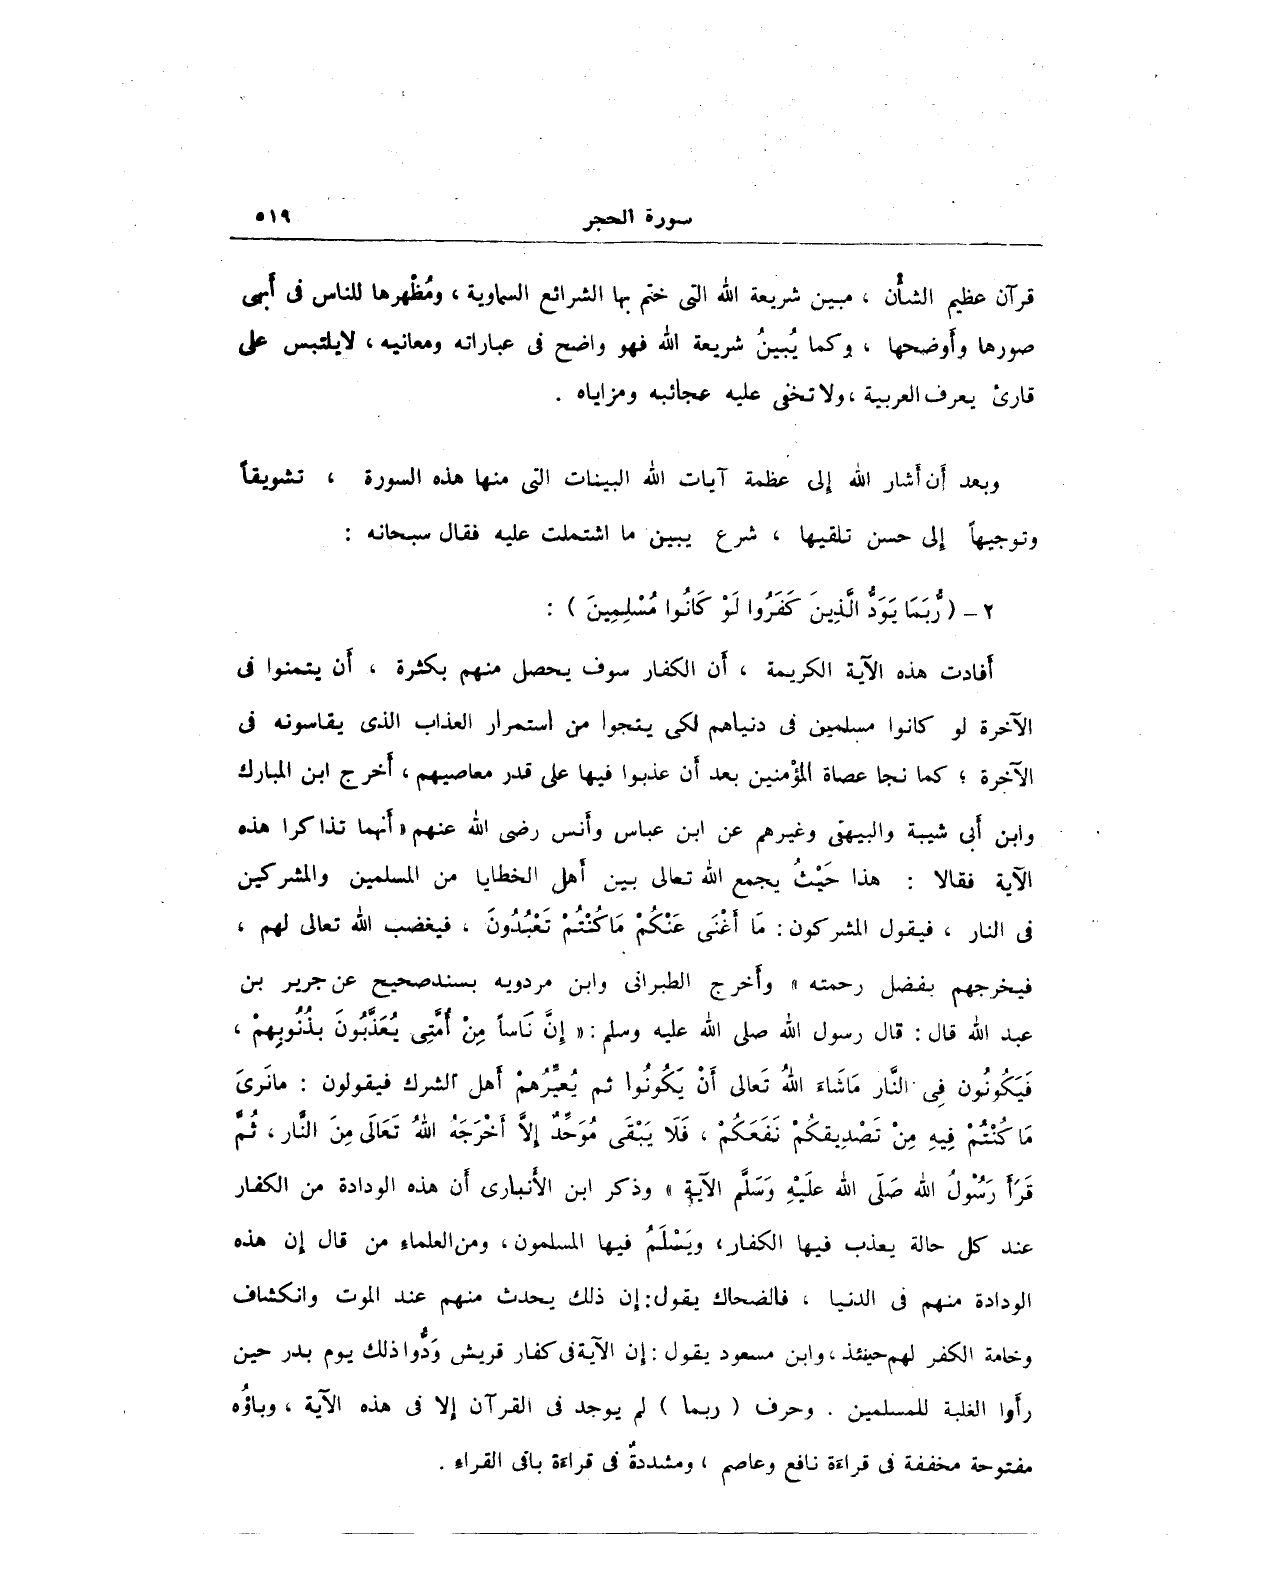 سورة الحجر
٥١٩
قرآن عظيم الشأن ، مبين شريعة الله التى ختم بها الشرائع السماوية ، ومُظْهرها للناس فى أبهى
صورها وأوضحها ، وكما يُبينُ شريعة الله فهو واضح فى عباراته ومعانيه ، لايلتبس على
قارئ يعرف العربية ، ولا تخفى عليه عجائبه ومزاياه .
وبعد أن أشار الله إلى عظمة آيات الله البينات التى منها هذه السورة ، تشويقاً
وتوجيهاً إلى حسن تلقيها ، شرع يبين ما اشتملت عليه فقال سبحانه :
٢ – ( رُّبَمَا يَوَدُّ الَّذِينَ كَفَرُوا لَوْ كَانُوا مُسْلِمِينَ ) :
أفادت هذه الآية الكريمة ، أن الكفار سوف يحصل منهم بكثرة ، أن يتمنوا فى
الآخرة لو كانوا مسلمين فى دنياهم لكى ينجوا من استمرار العذاب الذى يقاسونه فى
الآخرة ؛ كما نجا عصاة المؤمنين بعد أن عذبوا فيها على قدر معاصيهم ، أخرج ابن المبارك
وابن أبى شيبة والبيهقى وغيرهم عن ابن عباس وأنس رضى الله عنهم « أنهما تذاكرا هذه
الآية فقالا : هذا حَيْثُ يجمع الله تعالى بين أهل الخطايا من المسلمين والمشركين
فى النار ، فيقول المشركون : مَا أَغْنَى عَنْكُمْ مَا كُنْتُمْ تَعْبُدُونَ ، فيغضب الله تعالى لهم ،
فيخرجهم بفضل رحمته » وأخرج الطبرانى وابن مردويه بسند صحيح عن جرير بن
عبد الله قال : قال رسول الله صلى الله عليه وسلم : « إِنَّ نَاساً مِنْ أُمَّتِى يُعَذَّبُونَ بِذُنُوبِهِمْ ،
فَيَكُونُون فِى النَّار مَاشَاءَ اللهُ تَعالى أَنْ يَكُونُوا ثم يُعيِّرُهمْ أهل الشرك فيقولون : مانَرَىَ
مَا كُنْتُمْ فِيهِ مِنْ تَصْدِيقكُمْ نَفَعَكُمْ ، فَلَا يَبْقَى مُوَحِّدٌ إلاَّ أَخْرَجَهُ اللهُ تَعَالَى مِنَ النَّار ، ثُمَّ
قَرَأَ رَسُوْلُ الله صَلَى الله عليْهِ وَسَلَّم الآية » وذكر ابن الأنبارى أن هذه الودادة من الكفار
عند كل حالة يعذب فيها الكفار ، ويَسْلَمُ فيها المسلمون ، ومن العلماء من قال إن هذه
الودادة منهم فى الدنيا ، فالضحاك يقول : إن ذلك يحدث منهم عند الموت وانكشاف
وخامة الكفر لهم حينئذ ، وابن مسعود يقول : إن الآية فى كفار قريش وَدُّوا ذلك يوم بدر حين
رأوا الغلبة للمسلمين . وحرف ( ربما ) لم يوجد فى القرآن إلا فى هذه الآية ، وباؤُه
مفتوحة مخففة فى قراءة نافع وعاصم ، ومشددةٌ فى قراءة باقى القراء .